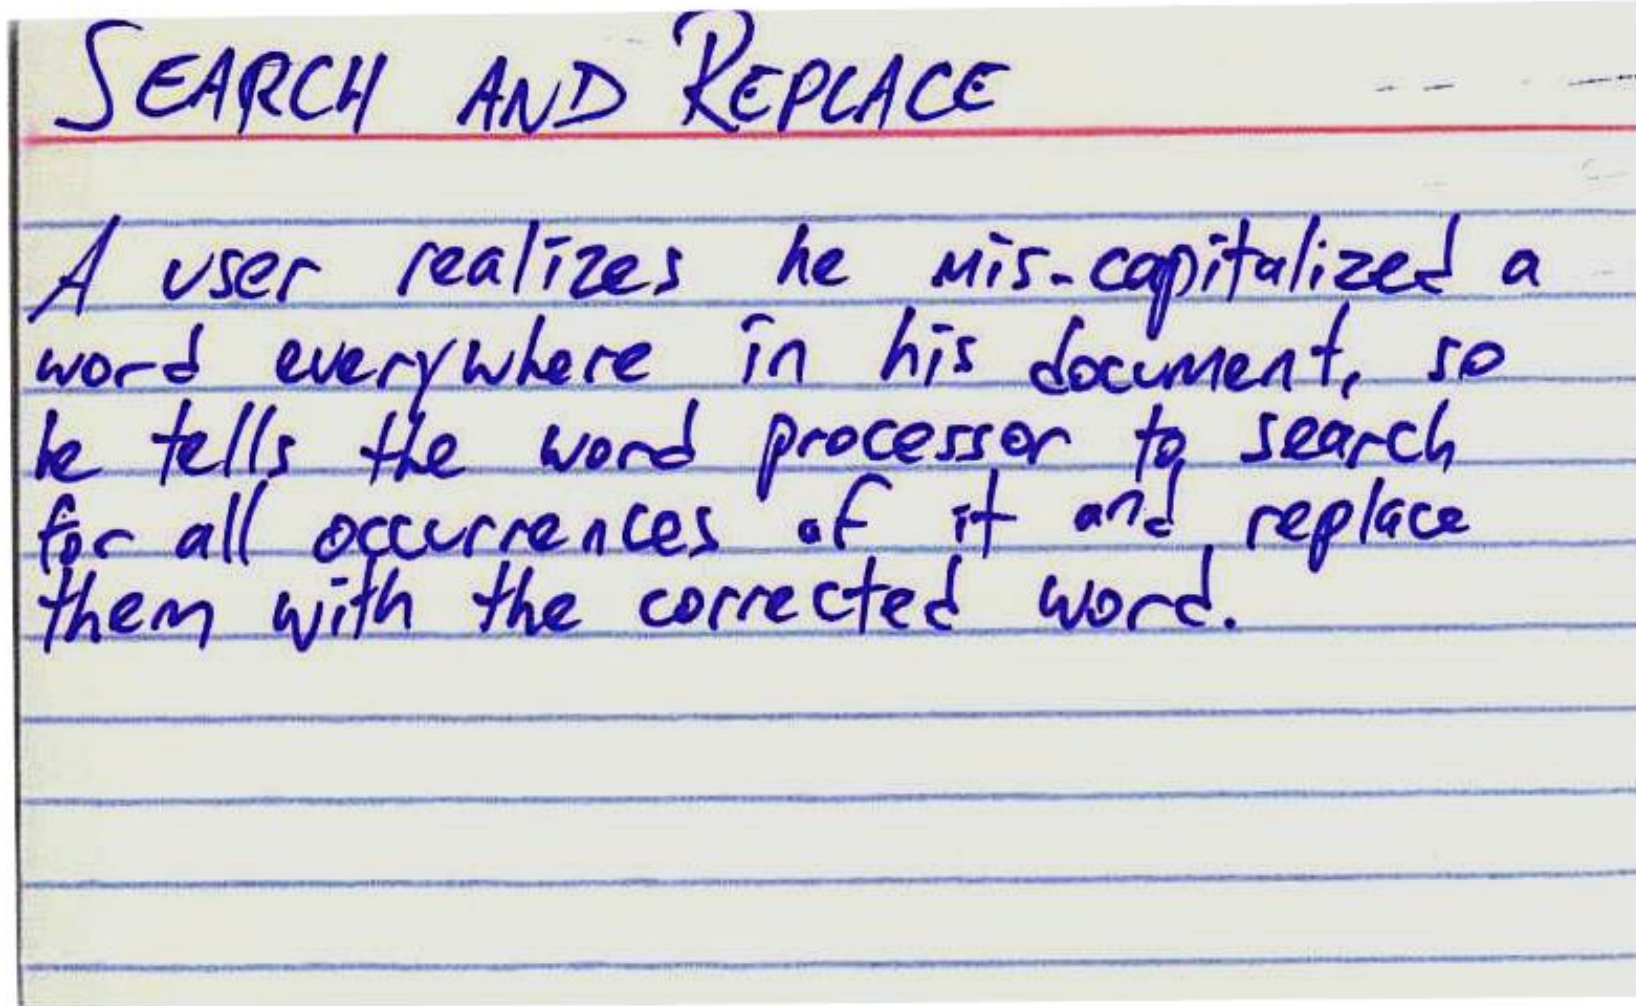 SEARCH AND REPLACE
A user realizes he mis-capitalized a
word everywhere in his document, so
he tells the word processor to search
for all occurrences of it and replace
them with the corrected word.